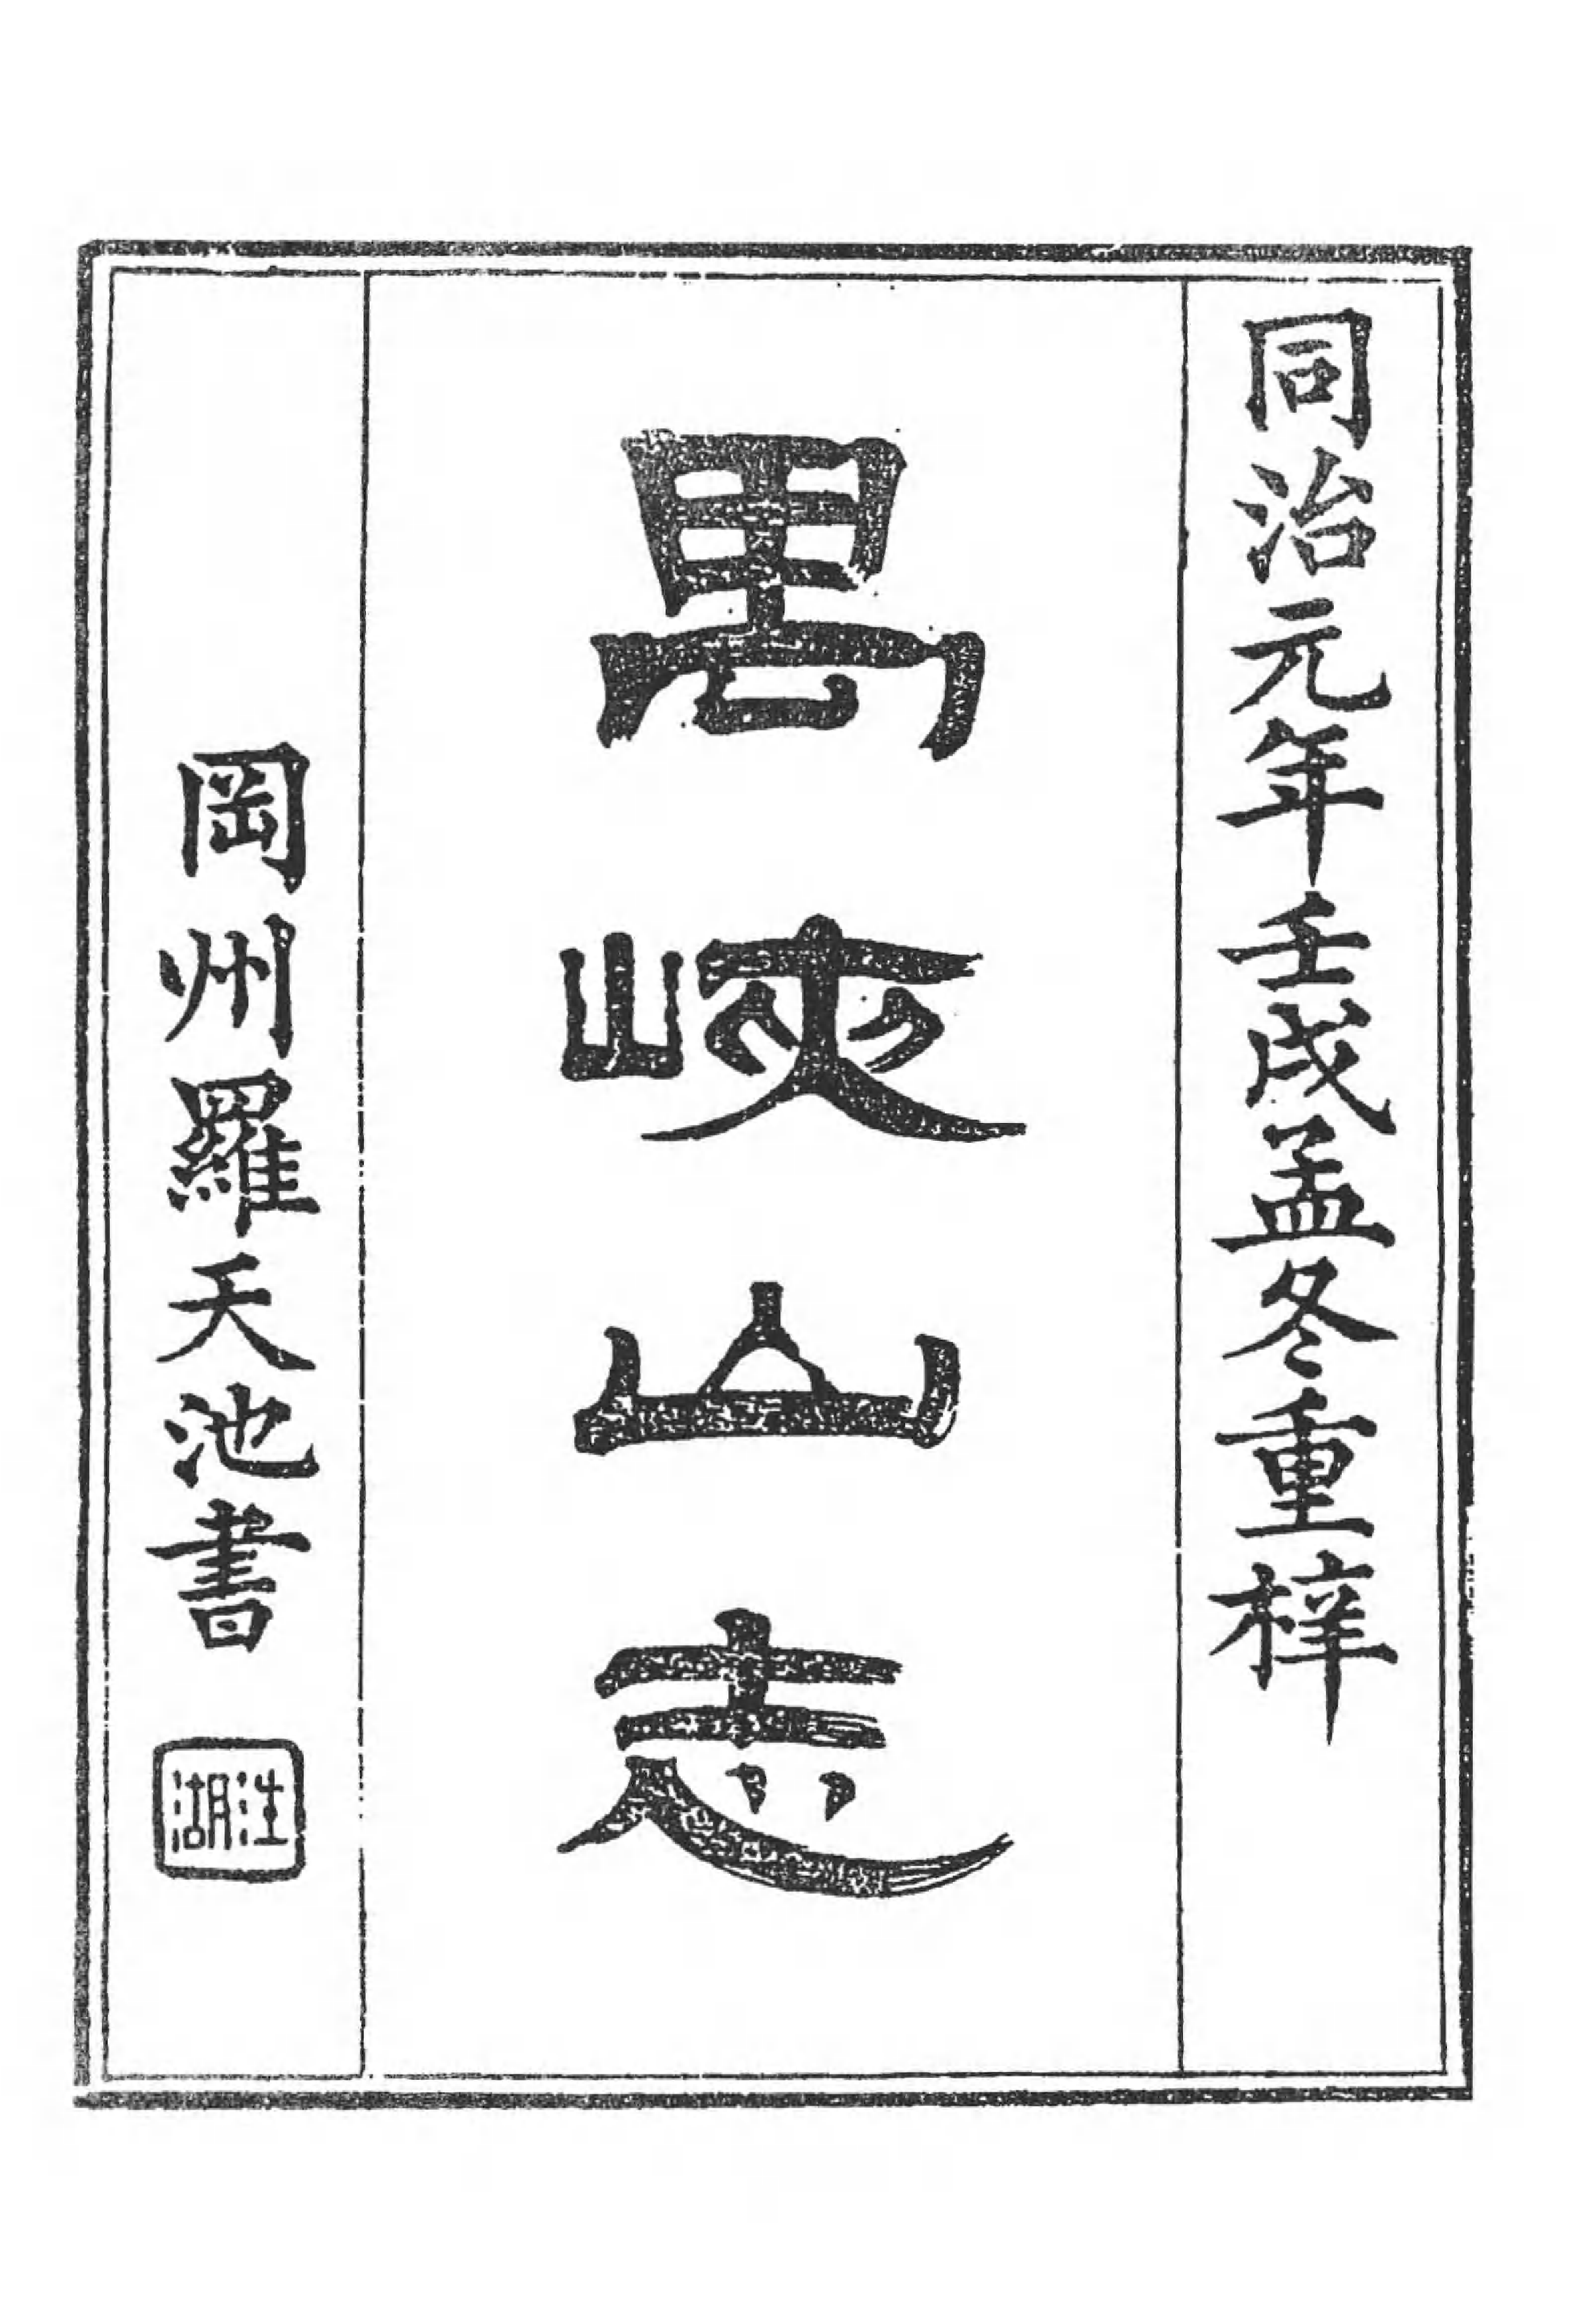 同治元年壬戌孟冬重梓
禺峽山志
岡州羅天池書
湖